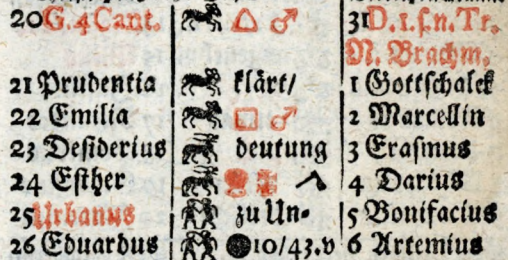 20 G. 4 Cant. △ ♂ 31 D. 1. s. n. Tr.
N. Brachm.
21 Prudentia klärt/ 1 Gottschalck
22 Emilia □ ♂ 2 Marcellin
23 Desiderius deutung 3 Erasmus
24 Esther 4 Darius
25 Urbanus zu Un- 5 Bonifacius
26 Eduardus ●10/43.v 6 Artemius